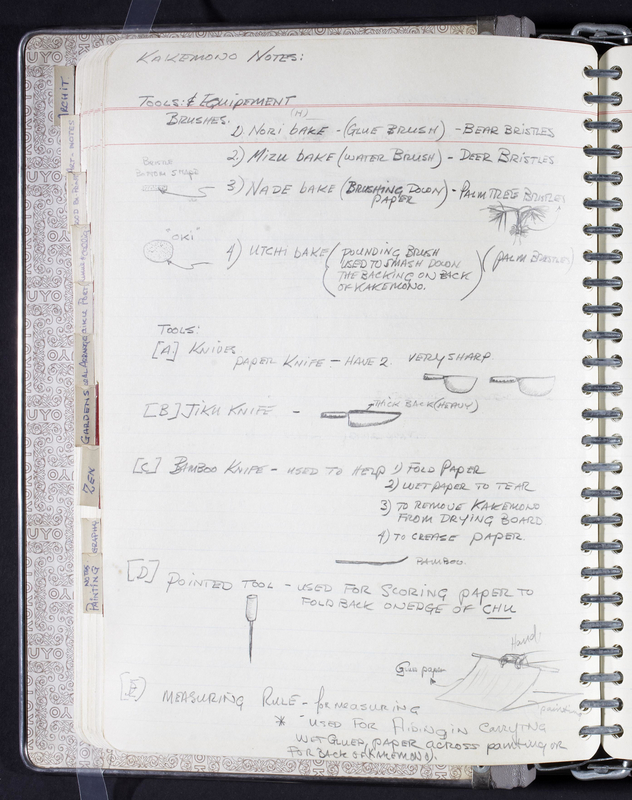 KAKEMONO NOTES:
TOOLS: & EQUIPEMENT
BRUSHES.
(H)
1) NORI bAKE - (GLUE BRUSH) - BEAR BRISTLES
2) MIZU bAKE (WATER BRUSH) - DEER BRISTLES
3) NADE bAKE (BRUSHING DOWN PAPER) - PALM TREE BRISTLES
"OKI"
4) UTCHI bAKE (POUNDING BRUSH
USED TO SMASH DOWN
THE BACKING ON BACK
OF KAKEMONO.) (PALM BRISTLES)
TOOLS:
[A] KNIVES
PAPER KNIFE - HAVE 2. VERY SHARP.
[B] JIKU KNIFE -
THICK BACK (HEAVY)
[C] BAMBOO KNIFE - USED TO HELP 1) FOLD PAPER
2) WET PAPER TO TEAR
3) TO REMOVE KAKEMONO
FROM DRYING BOARD
4) TO CREASE PAPER.
BAMBOO.
[D] POINTED TOOL - USED FOR SCORING PAPER TO
FOLD BACK ON EDGE OF CHU
Hand.
Glue paper
painting
[E] MEASURING RULE - for measuring
* USED FOR AIDING IN CARRYING
WET GLUED PAPER ACROSS painting OR
FOR BACK OF KAKEMONO).
ARCHIT
NOTES
GARDENS
ZEN
NOTES
PAINTING